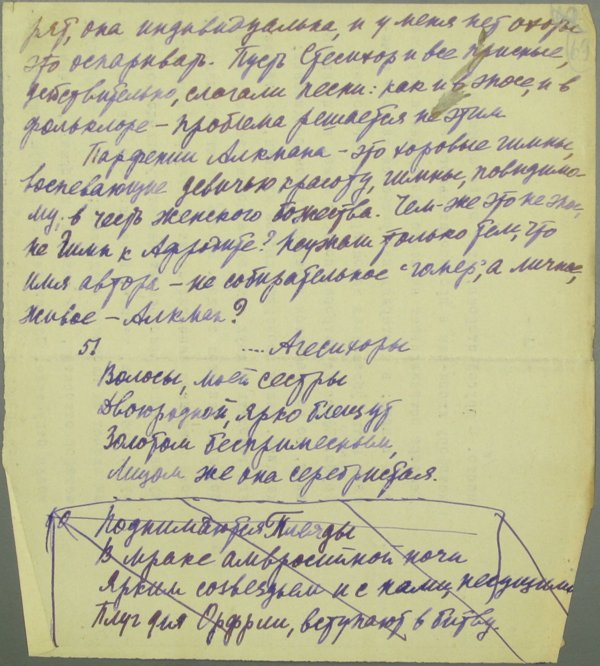 рят, она индивидуальна, и у меня нет охоты
это оспаривать. Пусть Стесихор и все присные,
действительно, слагали песни: как и в эпосе, и в
фольклоре – проблема решается не этим.
Парфении Алкмана – это хоровые гимны,
воспевающие девичью красоту, гимны, повидимо-
му, в честь женского божества. Чем-же это не эпос,
не Гимн к Афродите? Неужели только тем, что
имя автора – не собирательное "гомер", а личное,
живое – Алкман?
51 .... Агесихоры
Волосы, моей сестры
Двоюродной, ярко блещут
Золотом беспримесным,
Лицом же она серебристая.
60 Поднимаются Плеяды
В мраке амвросийной ночи
Ярким созвездьем и с нами, несущими
Плуг для Орфрии, вступают в битву.